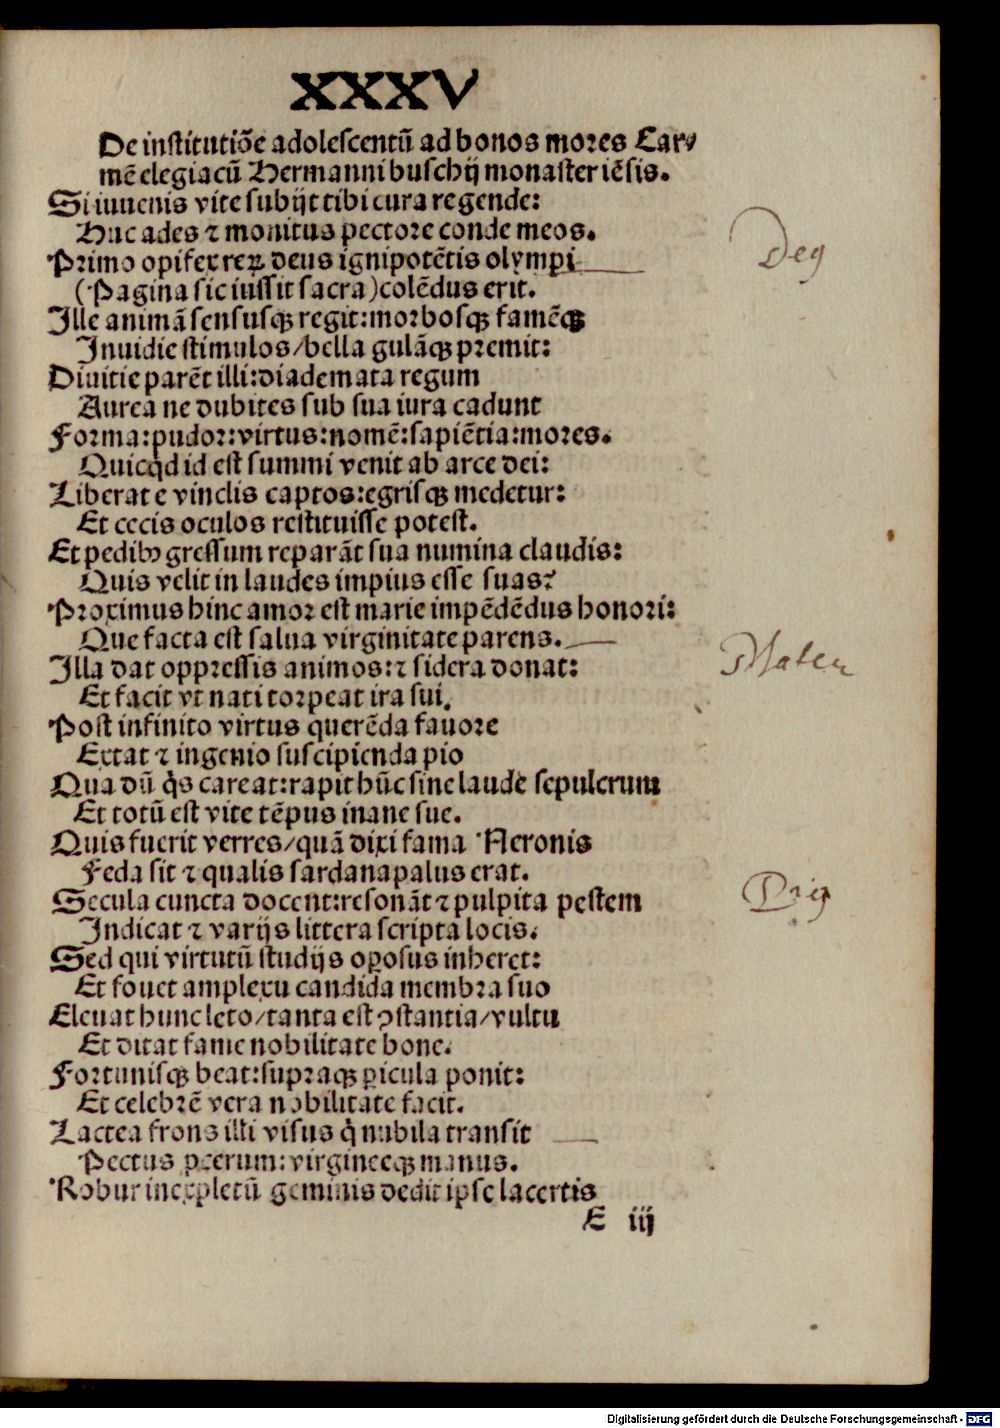 XXXV
De institutiõe adolescentũ ad bonos mores Car⸗
mẽ elegiacũ Hermanni buschij monasteriẽsis.
Si iuuenis vite subijt tibi cura regende:
Huc ades ⁊ monitus pectore conde meos.
Primo opifex reꝝ deus ignipotẽtis olympi
(Pagina sic iussit sacra)colẽdus erit.
Ille animã sensusqꝫ regit:morbosqꝫ famẽqꝫ
Inuidie stimulos/bella gulãqꝫ premit:
Diuitie parẽt illi:diademata regum
Aurea ne dubites sub sua iura cadunt
Forma:pudor:virtus:nomẽ:sapiẽtia:mores.
Quicq̇d id est summi venit ab arce dei:
Liberat e vinclis captos:egrisqꝫ medetur:
Et cecis oculos restituisse potest.
Et pedibꝫ gressum reparãt sua numina claudis:
Quis velit in laudes impius esse suas?
Proximus hinc amor est marie impẽdẽdus honori:
Que facta est salua virginitate parens.
Illa dat oppressis animos:⁊ sidera donat:
Et facit vt nati torpeat ira sui.
Post infinito virtus querẽda fauore
Extat ⁊ ingenio suscipienda pio
Qua dũ q̇s careat:rapit hũc sine laude sepulcrum
Et totũ est vite tẽpus inane sue.
Quis fuerit verres/quã dixi fama Neronis
Feda sit ⁊ qualis sardanapalus erat.
Secula cuncta docent:resonãt ⁊ pulpita pestem
Indicat ⁊ varijs littera scripta locis.
Sed qui virtutũ studijs oꝑosus inheret:
Et fouet amplexu candida membra suo
Eleuat hunc leto/tanta est ꝯstantia/vultu
Et ditat fame nobilitate bone.
Fortunisqꝫ beat:supraqꝫ ꝑicula ponit:
Et celebrẽ vera nobilitate facit.
Lactea frons illi visus q̇ nubila transit
Pectus pcerum:virgineeqꝫ manus.
Robur inexpletũ geminis dedit ipse lacertis
E iij
Deg
Mater
Digitalisierung gefördert durch die Deutsche Forschungsgemeinschaft - DFG